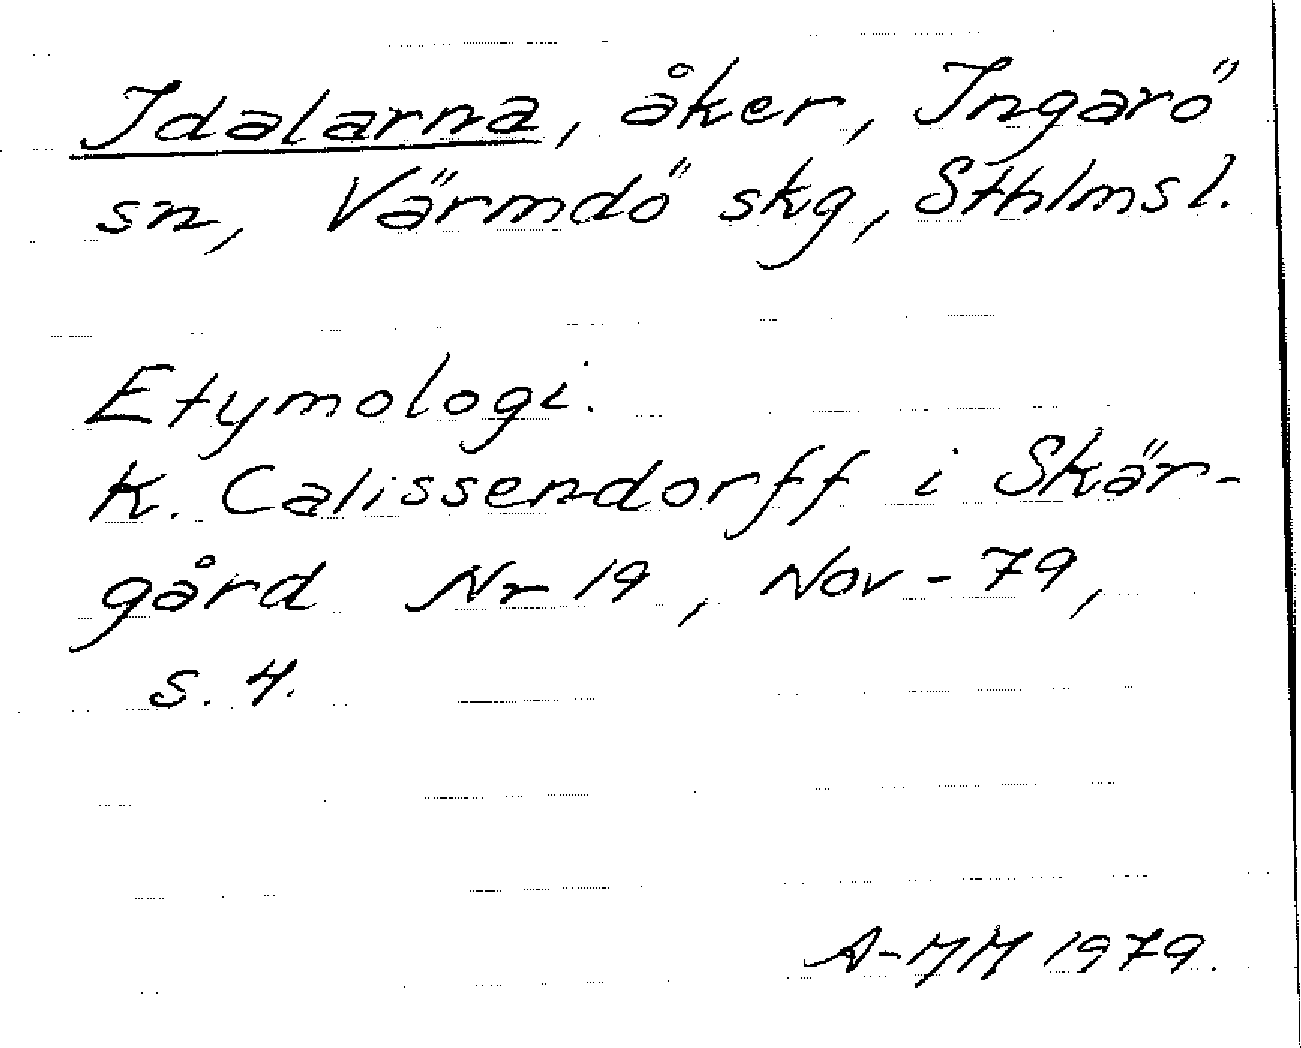 Idalarna, åker, Ingarö
sn, Värmdö skg, Sthlmsl.
Etymologi.
K. Calissendorff i Skär-
gård Nr 19, Nov - 79,
s. 4.
A-MM 1979.